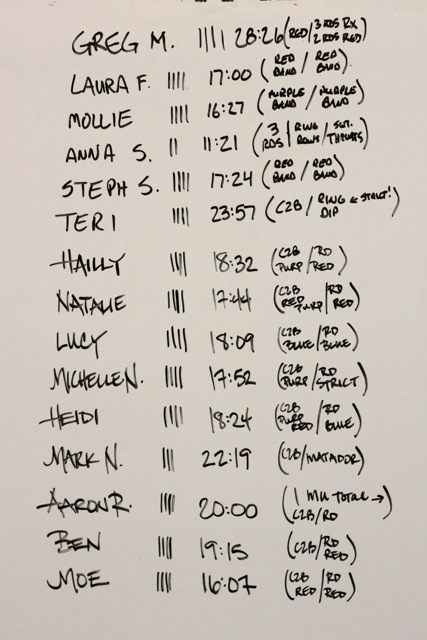 GREG M. |||| 28:26 (RED / 3 RDS RX 2 RDS RED)
LAURA F. |||| 17:00 (RED BAND / RED BAND)
MOLLIE |||| 16:27 (PURPLE BAND / PURPLE BAND)
ANNA S. || 11:21 (3 RDS | RING ROWS / SQT. THRUSTS)
STEPH S. |||| 17:24 (RED BAND / RED BAND)
TERI |||| 23:57 (C2B / RING DIP ← STRICT!)
HAILLY |||| 18:32 (C2B PURP / RD RED)
NATALIE |||| 17:44 (C2B RED PURP / RD RED)
LUCY |||| 18:09 (C2B BLUE / RD BLUE)
MICHELLE N. |||| 17:52 (C2B PURP / RD STRICT)
HEIDI |||| 18:24 (C2B PURP RED / RD BLUE)
MARK N. ||| 22:19 (C2B/MATADOR)
AARON R. |||| 20:00 (1 MU TOTAL → C2B/RD)
BEN |||| 19:15 (C2B / RD RED)
MOE |||| 16:07 (C2B RED / RD RED)